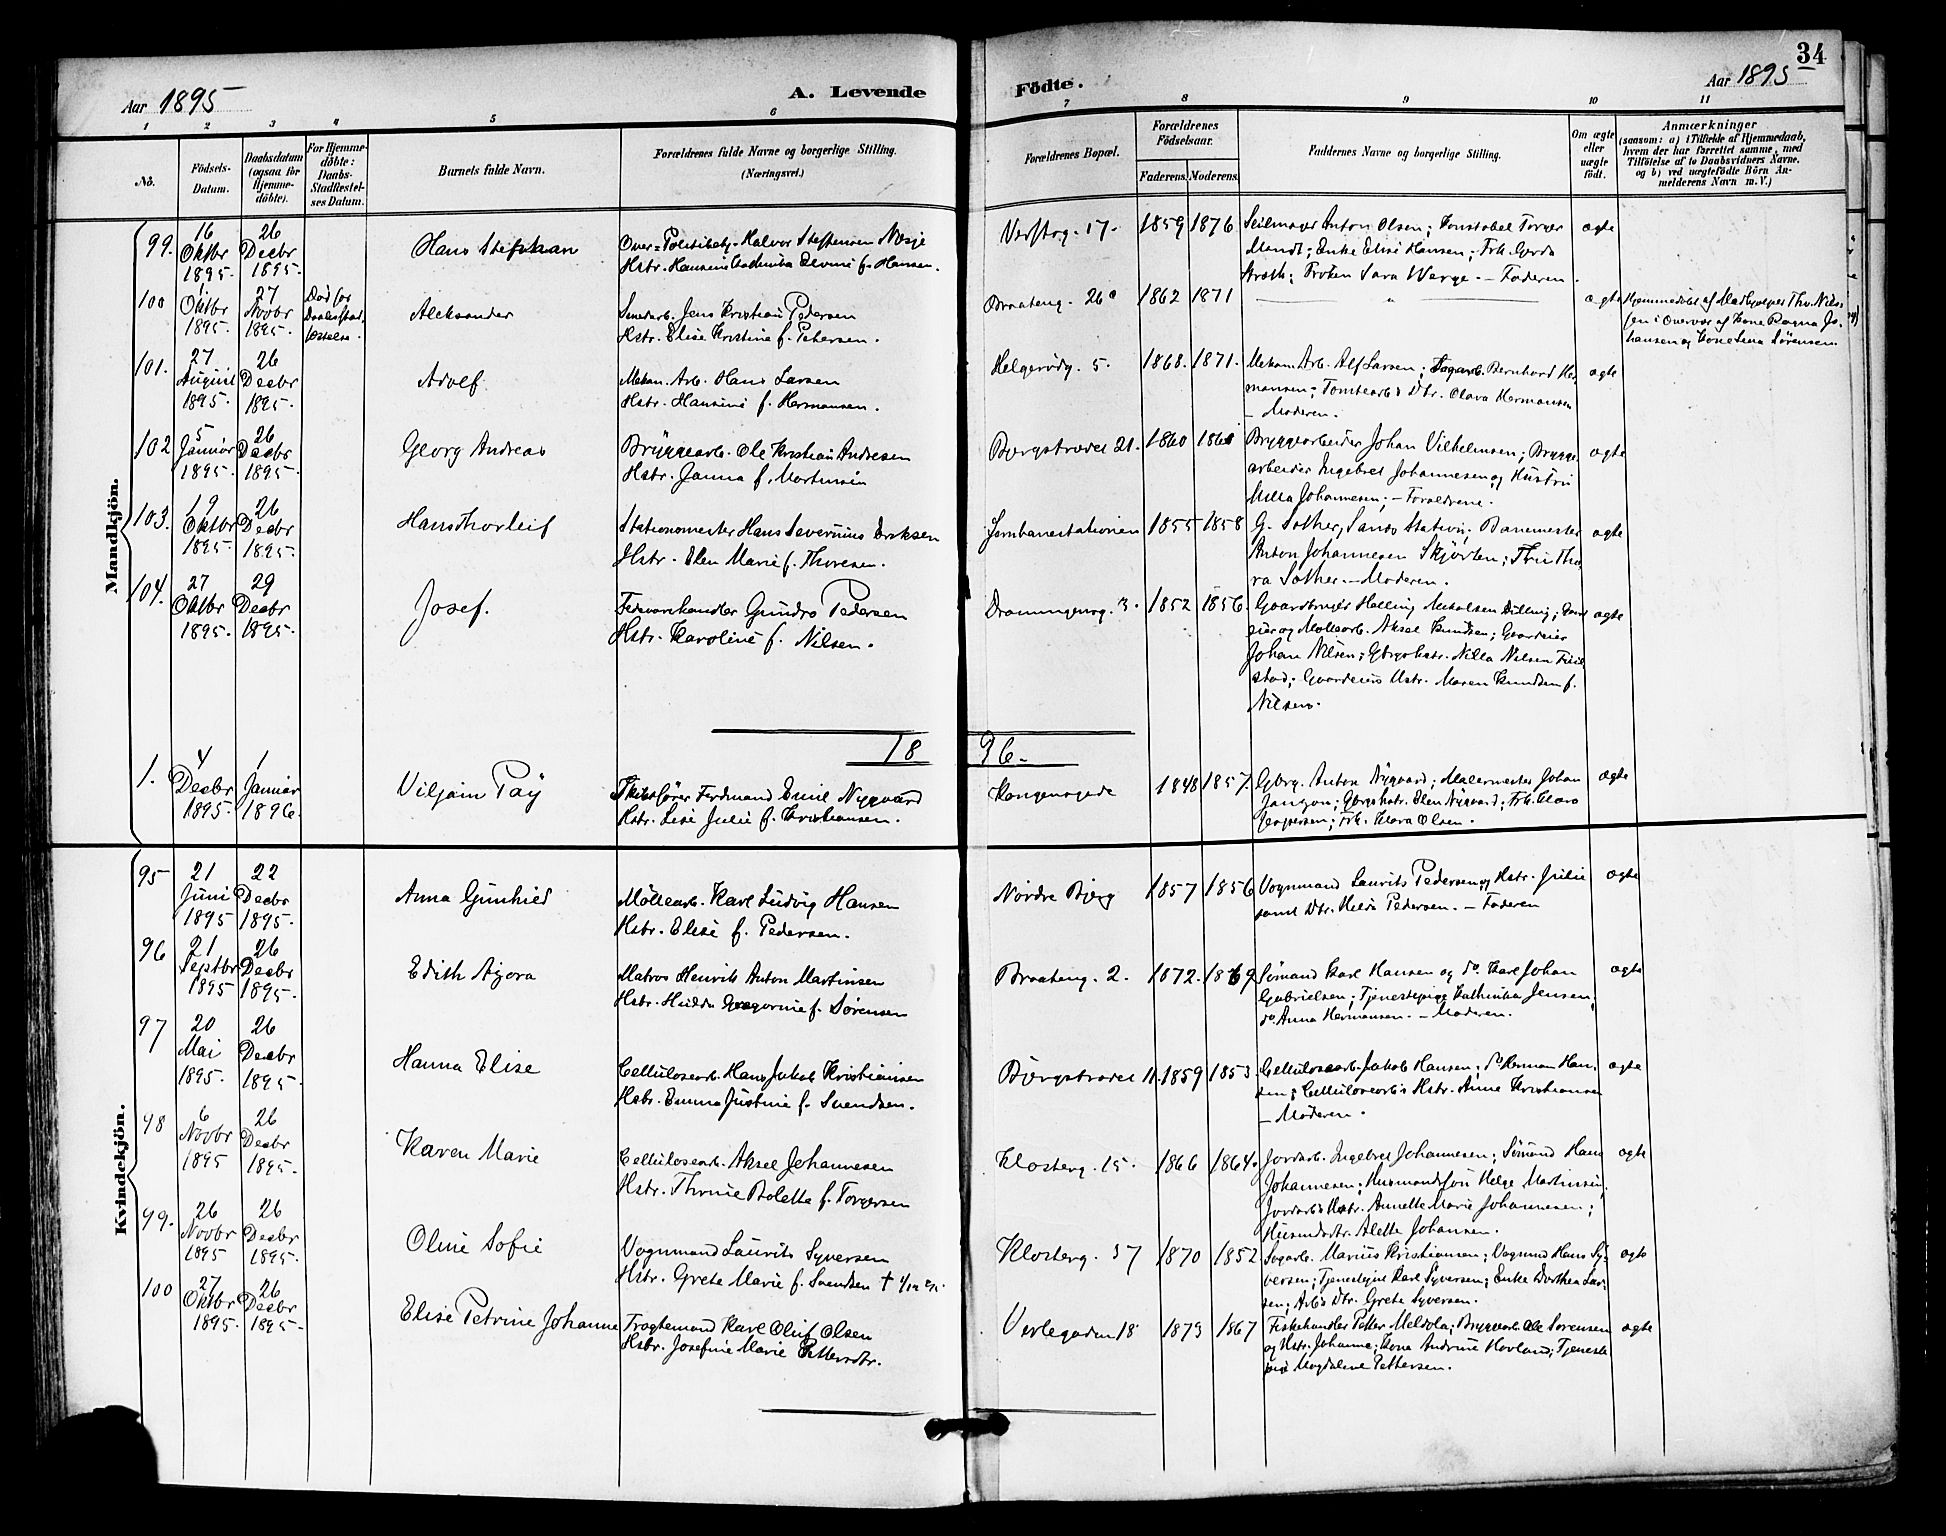 34
Aar 1895
A. Levende
Födte.
Aar 1895
1 2 3 4 5 6 7 8 9 10 11
No.
Födsels-
Datum.
Daabsdatum
(ogsaa for
Hjemme-
döbte).
For Hjemme-
döbte:
Daabs-
Stadfæstel-
ses Datum.
Barnets fulde Navn.
Forældrenes fulde Navne og borgerlige Stilling.
(Næringsvei.)
Forældrenes Bopæl.
Forældrenes
Födselsaar.
Faderens. Moderens.
Faddernes Navne og borgerlige Stilling.
Om ægte
eller
uægte
födt.
Anmærkninger
(saasom: a) i Tilfælde af Hjemmedaab,
hvem der har forrettet samme, med
Tilföielse af to Daabsvidners Navne.
og b) ved uægtefödte Börn An-
melderens Navn m. V.)
Mandkjön.
99. 16 Oktbr 1895. 26 Decbr 1895.
Hans Steffhan
Over-Politibetj. Halvor Steffensen Næsje
Hstr. Hansine Cathinka Elvine f. Hansen.
Verftsg. 17. 1859 1876
Seilmager Anton Olsen; Konstabel Torvær
Mandt; Enke Elise Hansen; Frk Gerda
Stroth; Frøken Sara Werge. - Faderen.
ægte
100 1 Oktbr 1895. 27 Novbr 1895.
Død før
Daabsstad-
fæstelse.
Aleksander
Smedarb. Jens Kristian Pedersen
Hstr. Elise Kristine f. Petersen.
Braateng. 26a 1862 1871
"
ægte
Hjemmedøbt af Madhjelper Thv. Niel-
sen i Overvær af Kone Ragna Jo-
hansen og Kone Lena Sørensen
101. 27 August 1895. 26 Decbr 1895.
Adolf
Mekan. Arb. Hans Larsen
Hstr. Hansine f. Hermansen.
Helgerødg. 5. 1868. 1871.
Mekan Arb. Alf Larsen; Sagarb. Bernhard He-
mansen; Tomtearb's Dtr. Olava Hermansen
- Moderen.
ægte
102 5 Januar 1895. 26 Decbr 1895.
Georg Andreas
Bryggearb. Ole Kristian Andresen
Hstr. Janna f. Martinsen
Bjergstrædet 21. 1860 1861
Bryggearbeider Johan Vilhelmsen; Brygge-
arbeider Ingebret Johannesen og Hustru
Milla Johannesen; - Forældrene.
ægte
103. 19 Oktbr 1895. 26 Decbr 1895.
Hans Thorleif
Stationsmester Hans Severinus Eriksen
Hstr. Elen Marie f. Thoresen.
Jernbanestationen 1855 1858
G. Sother, Sandø Station; Banemester
Anton Johannesen Skjørten; Fru Tho-
ra Sother. - Moderen.
ægte
104. 27 Oktbr 1895. 29 Decbr 1895.
Josef.
Fedevarehandler Gundro Pedersen
Hstr. Karoline f. Nilsen.
Drammensg. 3. 1852 1856.
Gaardbruger Helling Mikalsen Dilling;
og Møllearb. Aksel Knudsen; Gaardeier
Johan Nilsen; Gbrgshstr. Nilla Nilsen
stad; Gaardeiers Hstr. Maren Knudsen f.
Nilsen.
ægte
18 96.
1. 4 Decbr 1895. 1 Januar 1896.
Viljam Paÿ
Skibsfører Ferdinand Emil Nygaard
Hstr. Lise Julie f. Kristiansen.
Kongensgade 1848 1857.
Gbrg. Anton Nygaard; Malermester Johan
Janzon; Gbrgshstr. Elen Nygaard; Frk. Clara
Jespersen; Frk. Klara Olsen.
ægte
Kvindekjön.
95 21 Juni 1895 22 Decbr 1895.
Anna Gunhild
Møllearb. Karl Ludvig Hansen
Hstr. Elise f. Pedersen.
Nordre Bjerg 1857 1856
Vognmand Laurits Pedersen og Hstr. Julie
samt Dtr. Hilda Pedersen. - Faderen
ægte
96 21 Septbr 1895 26 Decbr 1895.
Edith Agora
Matros Henrik Anton Martinsen
Hstr. Hulda Gregorine f. Sørensen
Braateng. 2. 1872. 1869
Sømand Karl Hansen og do. Karl Johan
Gabrielsen; Tjenestepige Kathinka Jensen,
do Anna Hermansen. - Moderen.
ægte
97 20 Mai 1895. 26 Decbr 1895.
Hanna Elise
Cellulosearb. Hans Jakob Kristiansen
Hstr. Emma Justine f. Svendsen.
Bjergstrædet 11. 1859 1853.
Cellulosearb. Jakob Hansen; do Herman Han-
sen; Cellulosearb's Hstr. Anne Kristiansen
- Moderen.
ægte
98 6 Novbr 1895 26 Decbr 1895.
Karen Marie
Cellulosearb. Aksel Johannesen
Hstr. Thrine Bolette f. Torgersen
Klosterg. 15. 1866 1864.
Jordarb. Ingebret Johannesen; Sømand Hans
Johannesen; Husmandssøn Helge Martinsen;
Jordarb's Hstr. Annette Marie Johannesen;
Husmdsdtr. Alette Johansen.
ægte
99. 26 Novbr 1895 26 Decbr 1895.
Oline Sofie
Vognmand Laurits Syversen
Hstr. Grete Marie f. Svendsen †
Klosterg. 37 1870 1852
Sagarb. Marius Kristiansen; Vognmd Hans Sy-
versen; Tjenestepige Karl Syversen; Enke Dorthea Lar-
sen; Arb's Dtr. Grete Syversen.
ægte
100 27 Oktbr 1895. 26 Decbr 1895.
Elise Petrine Johanne
Fragtemand Karl Oluf Olsen
Hstr. Josefine Marie Pettersdtr.
Verlegaden 18 1873 1867
Fiskehandler Petter Meldola; Bryggearb. Ole Sørensen
og Hstr. Johanne; Kone Andrine Hovland; Tjeneste
pige Magdalene Pettersen.
ægte